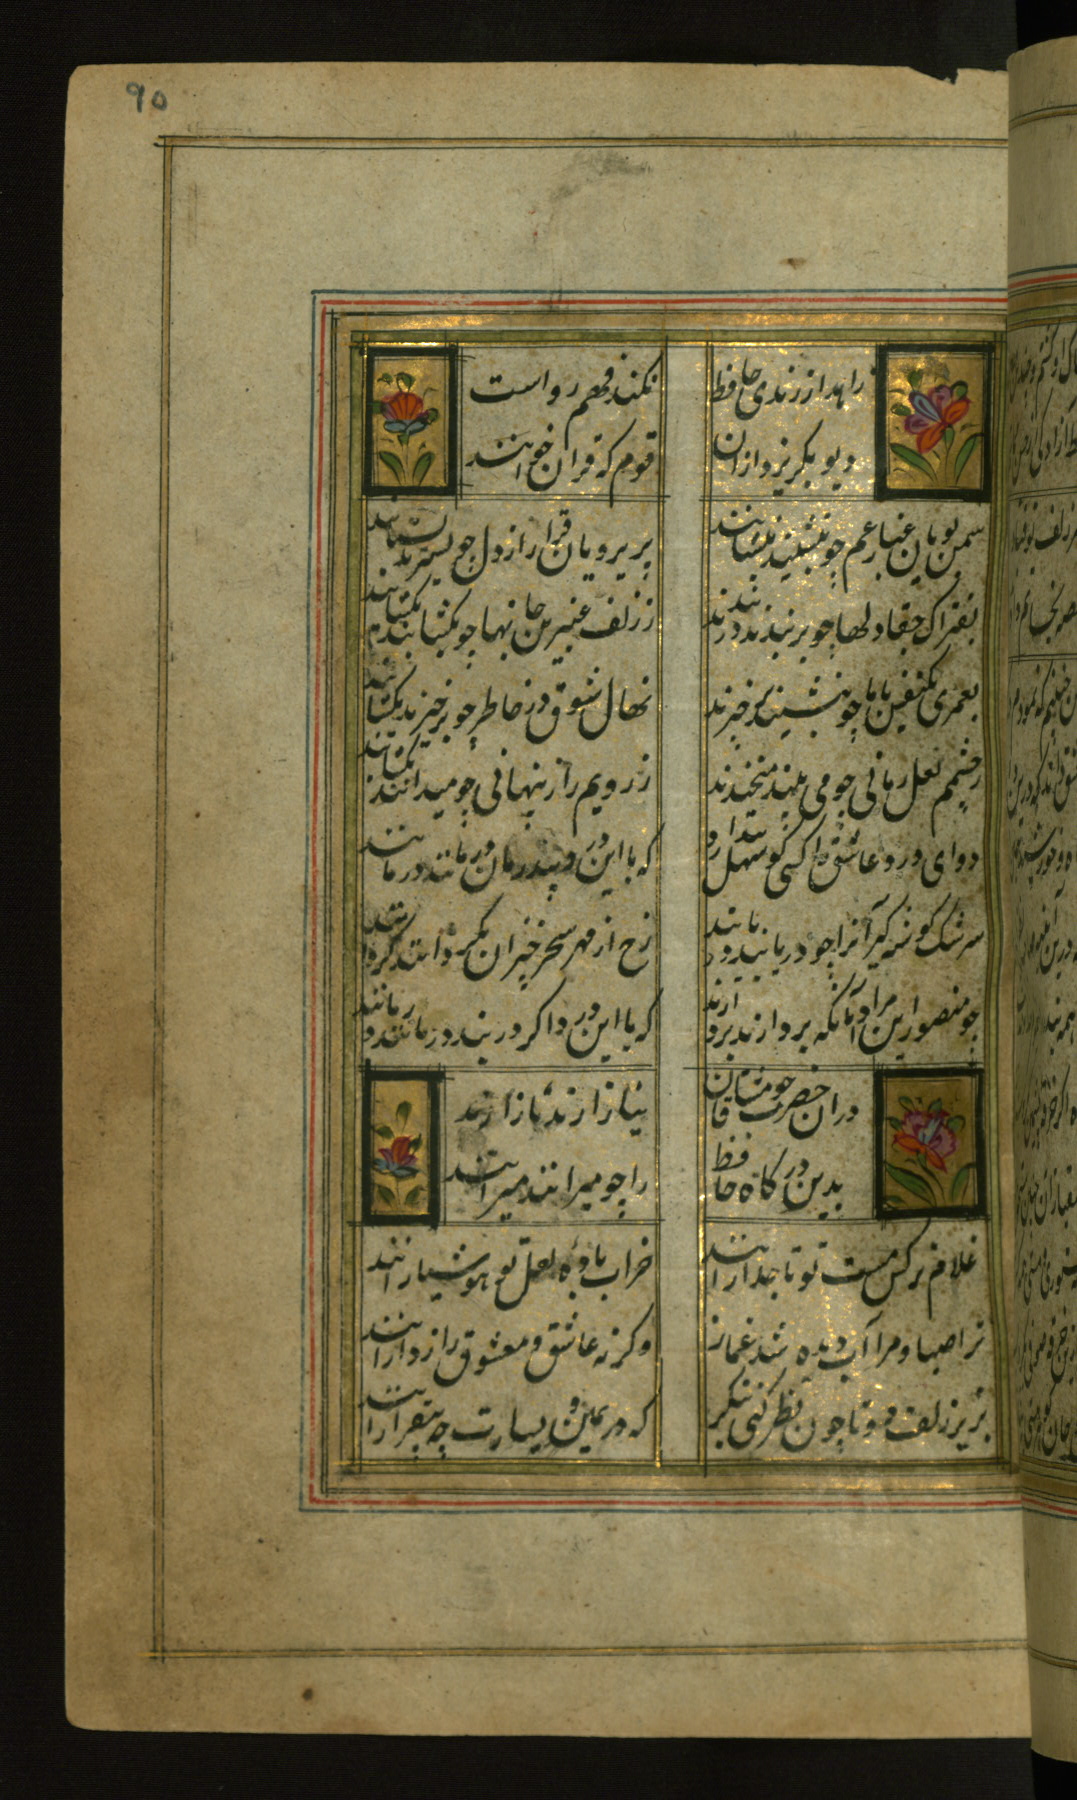 90
زاهد از رندی حافظ نکند فهم رواست
دیو بگریزد از ان قوم که قران خوانند
سمن بویان غبار غم چو بنشینند بنشانند پریرویان قرار از دل چو بستیزند بستانند
بفتراک جفا دلها چو بربندند بربندند ز زلف عنبرین جانها چو بگشایند بفشانند
بعمری یکنفس با ما چو بنشینند برخیزند نهال شوق در خاطر چو برخیزند بنشانند
ز چشمم لعل رمانی چو می بینند میخندند ز رویم راز پنهانی چو میدانند میخوانند
دوای درد عاشق را کسی کو سهل پندارد که با این درد در بند درمان درمانند درمانند
سرشک گوشه گیرانرا چو دریابند در یابند رخ از مهر سحرخیزان نگردانند گر دانند
چو منصور از مراد آنانکه بردارند بردارند که با این درد اگر در بند درمانند درمانند
دران حضرت چو مشتاقان نیاز ارند ناز ارند
بدین درگاه حافظ را چو میرانند میرانند
غلام نرکس مست تو تاجدارانند خراب باده لعل تو هوشیارانند
ترا صبا و مرا آب دیده شد غماز وکرنه عاشق و معشوق رازدارانند
بزیر زلف دوتا چون نظر کنی بنگر که در یمین و یسارت چه بیقرارانند